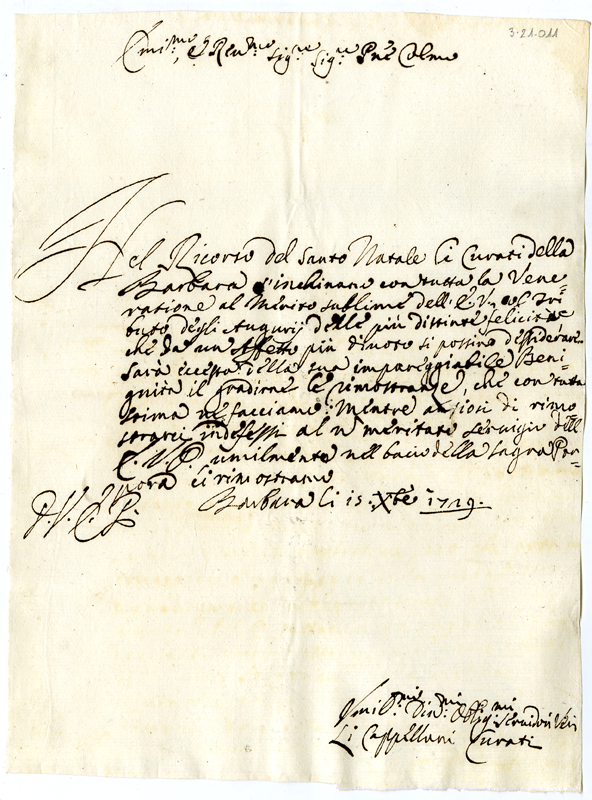 3-21-011
Emi.mo, e Reu.mo Sig.re Sig.re Pne Colmo
Nel Ricorso del Santo Natale li Curati della
Barbara s'inchinano con tutta la Vene-
ratione al Merito sublime dell'E. V. col Tri
buto degli Augurij delle più distinte felicità
che da un Affetto più divoto si possino dessiderare
sarà eccesso della sua impareggiabile Beni-
gnità il gradirne le rimostranze, che con tutta
stima ne facciamo: Mentre ansiosi di rimo
strarci indefessi al meritato servigio dell
E. V. umilmente nell bacio della Sagra Por-
pora ci rimostriamo
D. V. E.
Barbara li 15 Xbre 1729.
Umil.mi Div.mi Obblig.mi Servidori Veri
Li Cappellani Curati